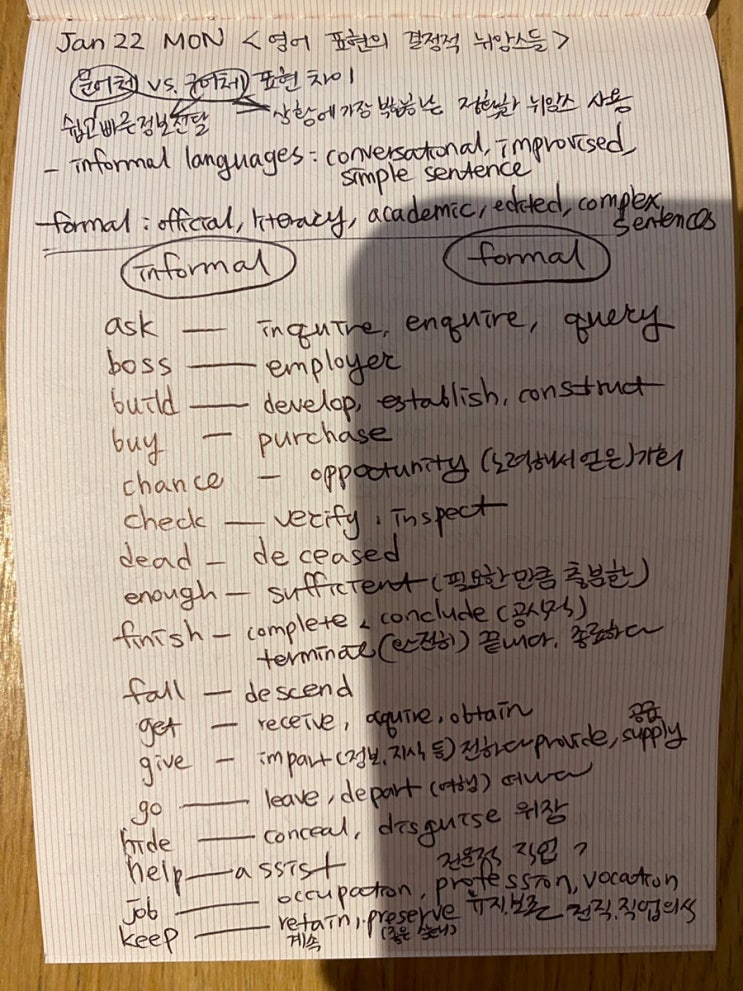 Jan 22 MON < 영어 표현의 결정적 뉘앙스들 >
문어체 vs. 구어체 표현 차이
쉽고 빠른 정보전달 상황에 가장 정확한 뉘앙스 사용
- informal languages : conversational, improvised,
simple sentence
- formal : official, literacy, academic, edited, complex
sentences
informal formal
ask — inquire, enquire, query
boss — employer
build — develop, establish, construct
buy — purchase
chance — opportunity (노력해서 얻은) 기회
check — verify, inspect
dead — deceased
enough — sufficient (필요한 만큼 충분한)
finish — complete, conclude (공식적)
terminate (완전히) 끝내다. 종료하다
fall — descend
get — receive, aquire, obtain
공급
give — impart (정보, 지식 등) 전하다 provide, supply
go — leave, depart (여행) 떠나다
hide — conceal, disguise 위장
help — assist
전문적 직업
job — occupation, profession, vocation
keep — retain, preserve 유지.보존 천직.직업의식
계속